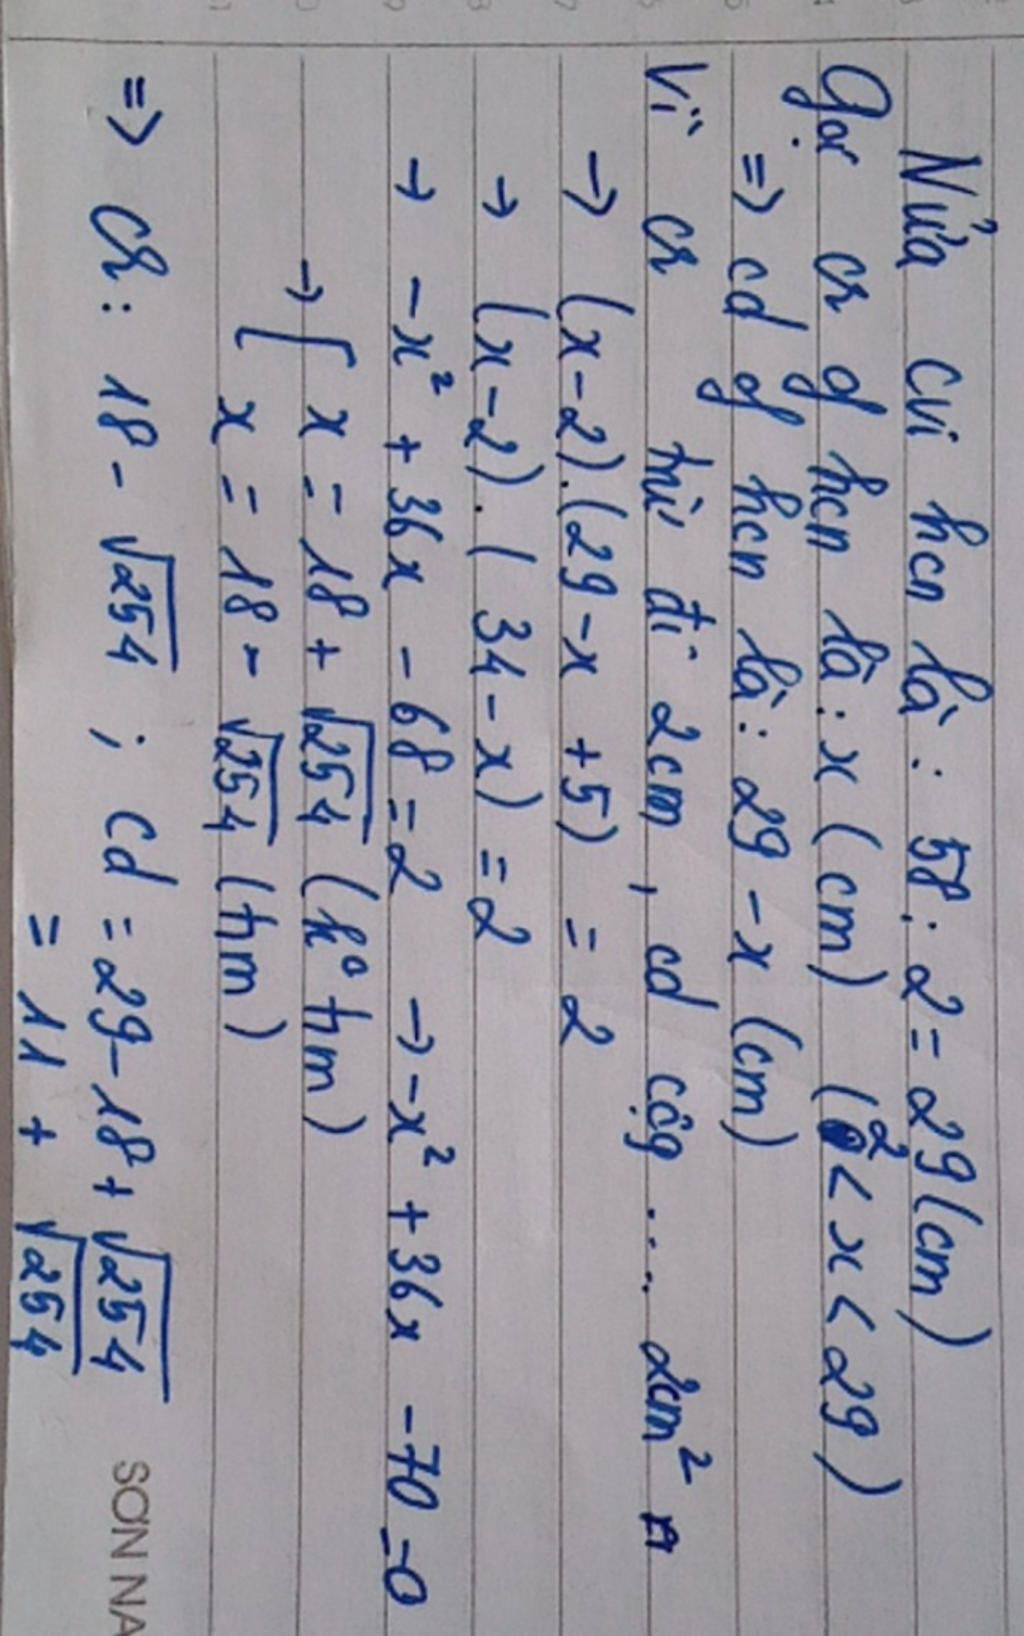 Nửa cvi hcn là : 58 : 2 = 29 (cm)
Gọi cr of hcn là : x (cm) (2 < x < 29)
=> cd of hcn là : 29 - x (cm)
Vì cr trừ đi 2cm, cd cộg .... 2cm² n
→ (x-2).(29-x +5) = 2
→ (x-2).( 34-x) = 2
→ -x² + 36x - 68 = 2 → -x² + 36x - 70 = 0
→ [ x = 18 + √254 (k° tm)
x = 18 - √254 (tm)
=> CR : 18 - √254 ; Cd = 29 - 18 + √254
= 11 + √254
SƠN NA